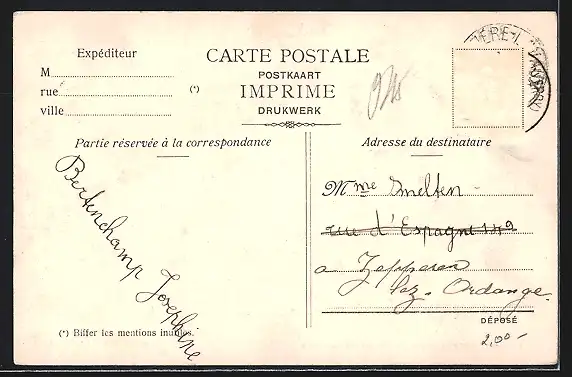 Expéditeur
M
rue (*)
ville
CARTE POSTALE
POSTKAART
IMPRIME
DRUKWERK
Partie réservée à la correspondance
Bertinchamp Josephine
(*) Biffer les mentions inutiles.
Adresse du destinataire
Mme Smelten
rue d'Espagne
a Zepperen
lez. Ordange.
DÉPOSÉ
2,00 -